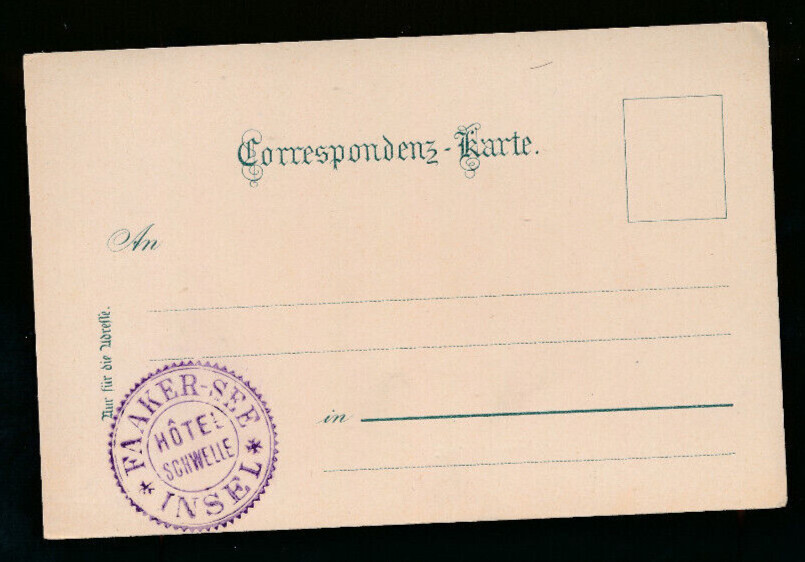 Correspondenz-Karte.
An
Nur für die Adresse.
in
FAAKER-SEE
HÔTEL
SCHWELLE
* INSEL *